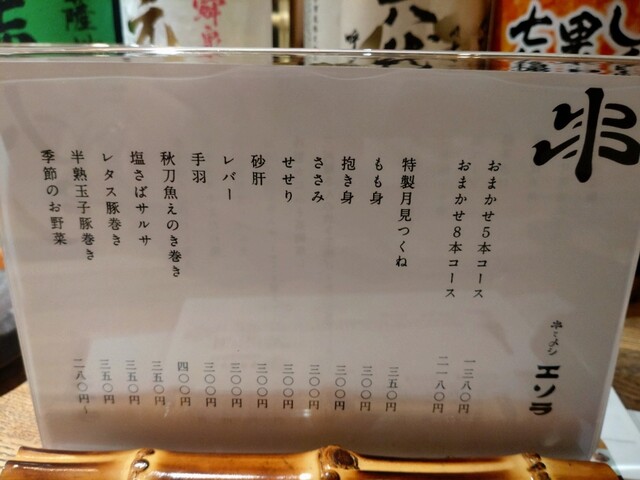 串
串とメシ
エソラ
おまかせ5本コース 一三八〇円
おまかせ8本コース 二一八〇円
特製月見つくね 三五〇円
もも身 三〇〇円
抱き身 三〇〇円
ささみ 三〇〇円
せせり 三〇〇円
砂肝 三〇〇円
レバー 三〇〇円
手羽 三〇〇円
秋刀魚えのき巻き 四〇〇円
塩さばサルサ 三五〇円
レタス豚巻き 三五〇円
半熟玉子豚巻き 三五〇円
季節のお野菜 二八〇円～
薩
六代
黒